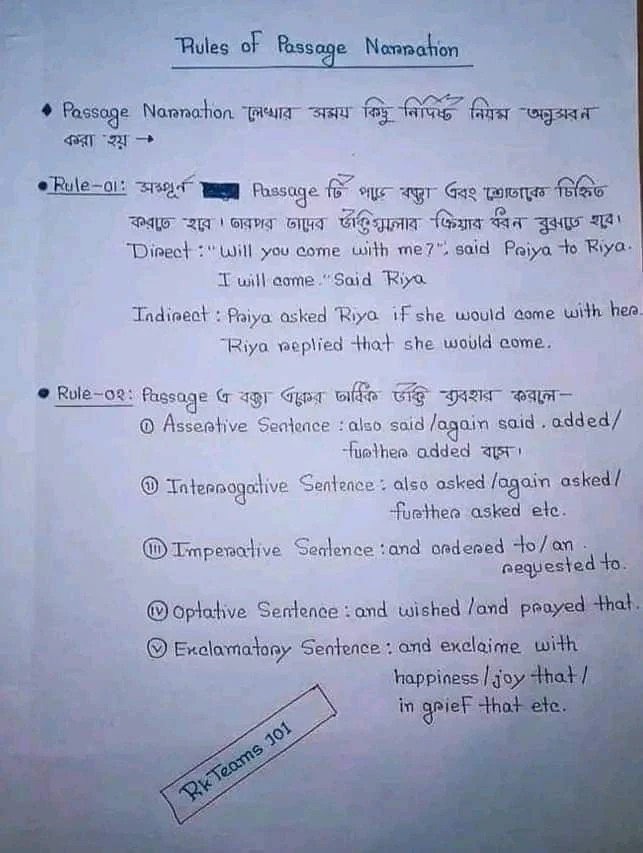 Rules of Passage Narration
♦ Passage Narration লেখার সময় কিছু নির্দিষ্ট নিয়ম অনুসরন
করা হয় →
• Rule-01: সম্পূর্ন Passage টি পড়ে বক্তা এবং শ্রোতাকে চিহ্নিত
করতে হবে। তারপর তাদের উক্তিগুলোর ক্রিয়ার ধরন বুঝতে হবে।
Direct : "Will you come with me?", said Priya to Riya.
I will come." Said Riya
Indirect : Priya asked Riya if she would come with her.
Riya replied that she would come.
• Rule-02: Passage এ বক্তা একের অধিক উক্তি ব্যবহার করলে-
(i) Assertive Sentence : also said /again said . added/
further added বসে।
(ii) Interrogative Sentence : also asked /again asked/
further asked etc.
(iii) Imperative Sentence : and ordered to/an
requested to.
(iv) Optative Sentence : and wished /and prayed that.
(v) Exclamatory Sentence : and exclaime with
happiness / joy that /
in grief that etc.
RkTeams 101